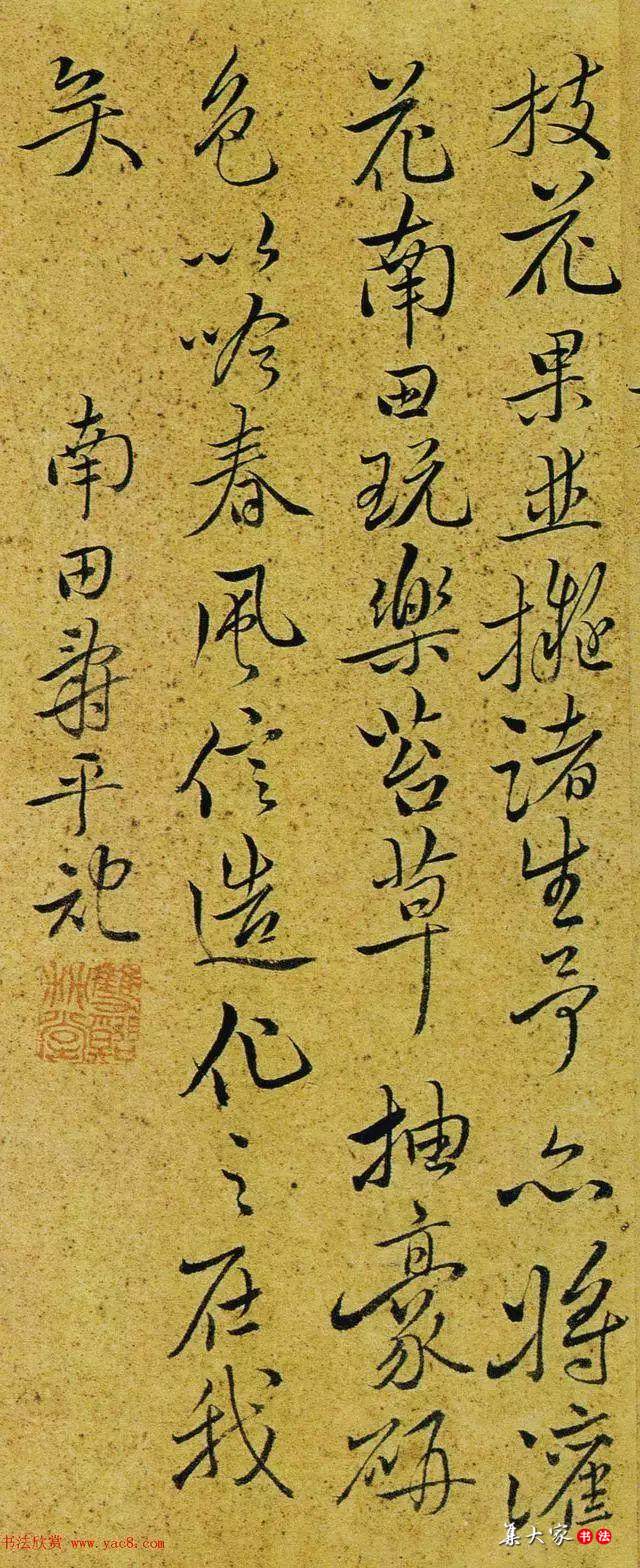 枝花果並擬諸生予亦将灌
花南田玩樂苔草抽豪研
色以吟春風信造化之在我
矣
南田壽平記
书法欣赏 www.yac8.com
集大家 书法